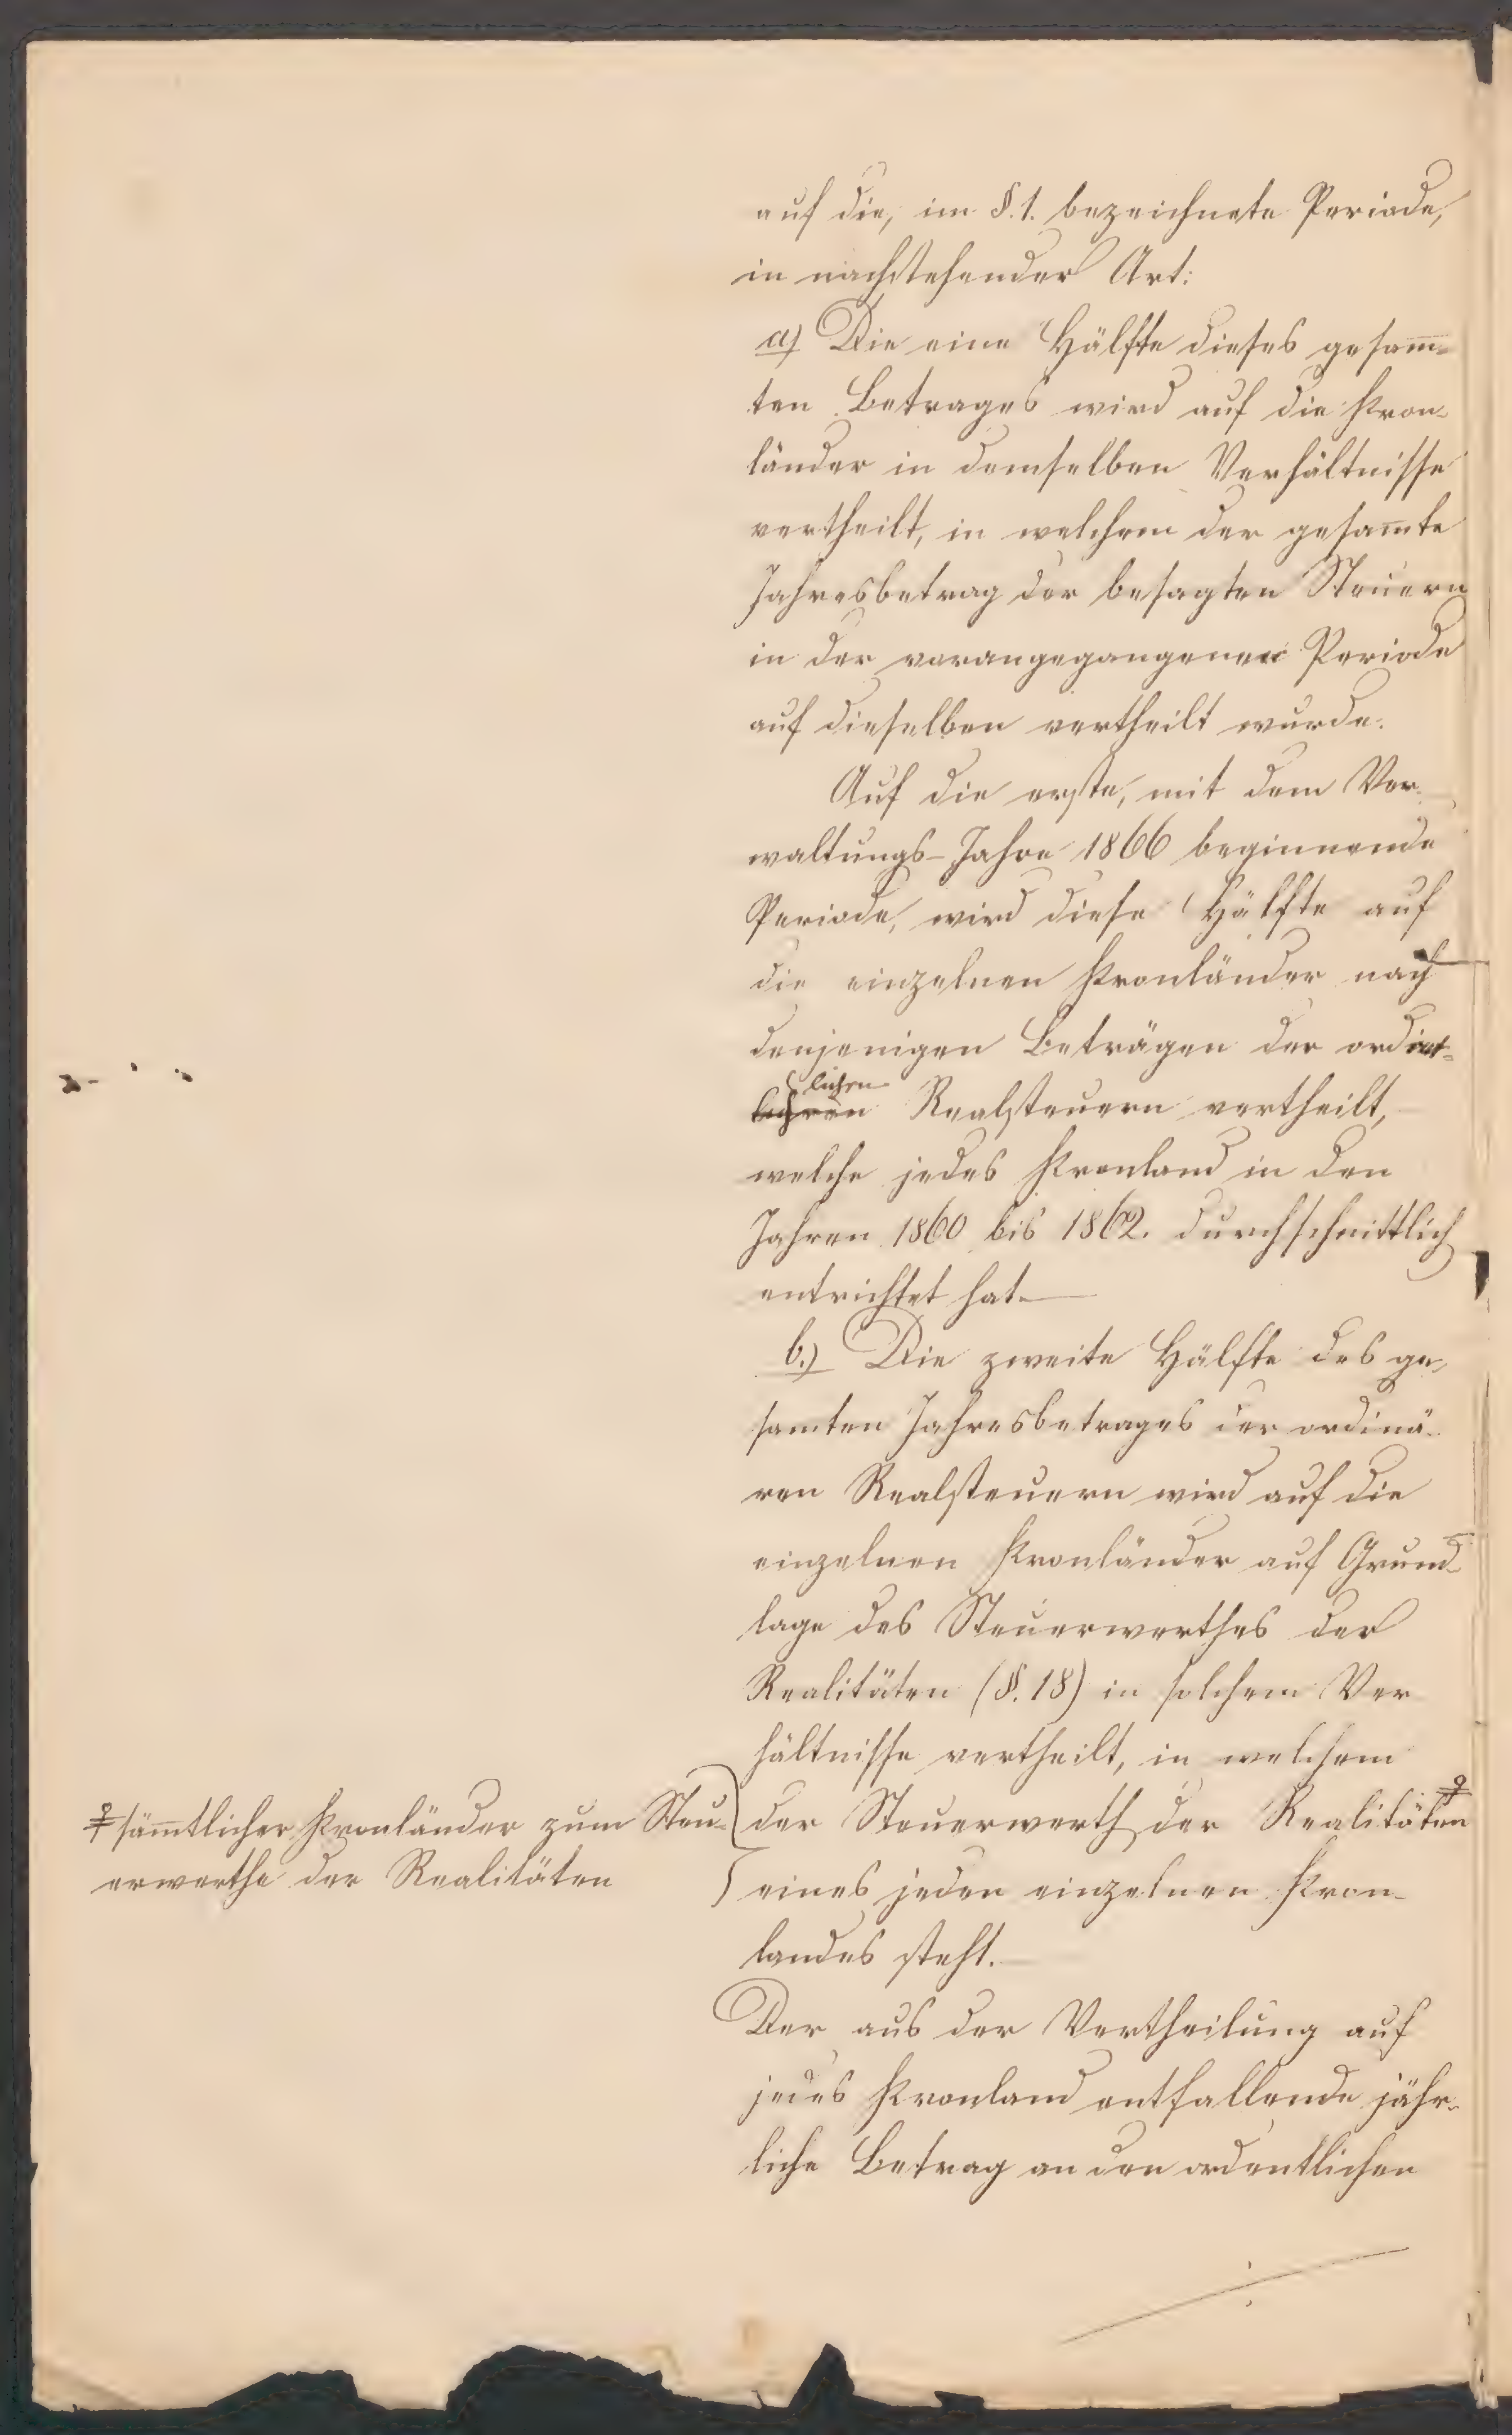 auf die, im §. 1. bezeichnete Periode,
in nachstehender Art:
a) Die eine Hälfte dieses gesam̅-
ten Betrages wird auf die Kron-
länder in demselben Verhältnisse
vertheilt, in welchem der gesam̅te
Jahresbetrag der besagten Steuern
in der vorangegangenen Periode
auf dieselben vertheilt wurde.
Auf die erste, mit dem Ver-
waltungs-Jahre 1866 beginnende
Periode, wird diese Hälfte auf
die einzelnen Kronländer nach
denjenigen Beträgen der
lichen
Realsteuern vertheilt,
welche jedes Kronland in den
Jahren 1860 bis 1862. durchschnittlich
entrichtet hat.
b.) Die zweite Hälfte des ge-
samten Jahresbetrages der ordinä-
ren Realsteuern wird auf die
einzelnen Kronländer auf Grund-
lage des Steuerwerthes der
Realitäten (§. 18) in solchem Ver
hältnisse vertheilt, in welchem
der Steuerwerth der Realitäten
sam̅tlicher Kronländer zum Steu-
erwerthe der Realitäten
eines jeden einzelnen Kron-
landes steht.
Der aus der Vertheilung auf
jedes Kronland entfallende jähr-
liche Betrag an den ordentlichen